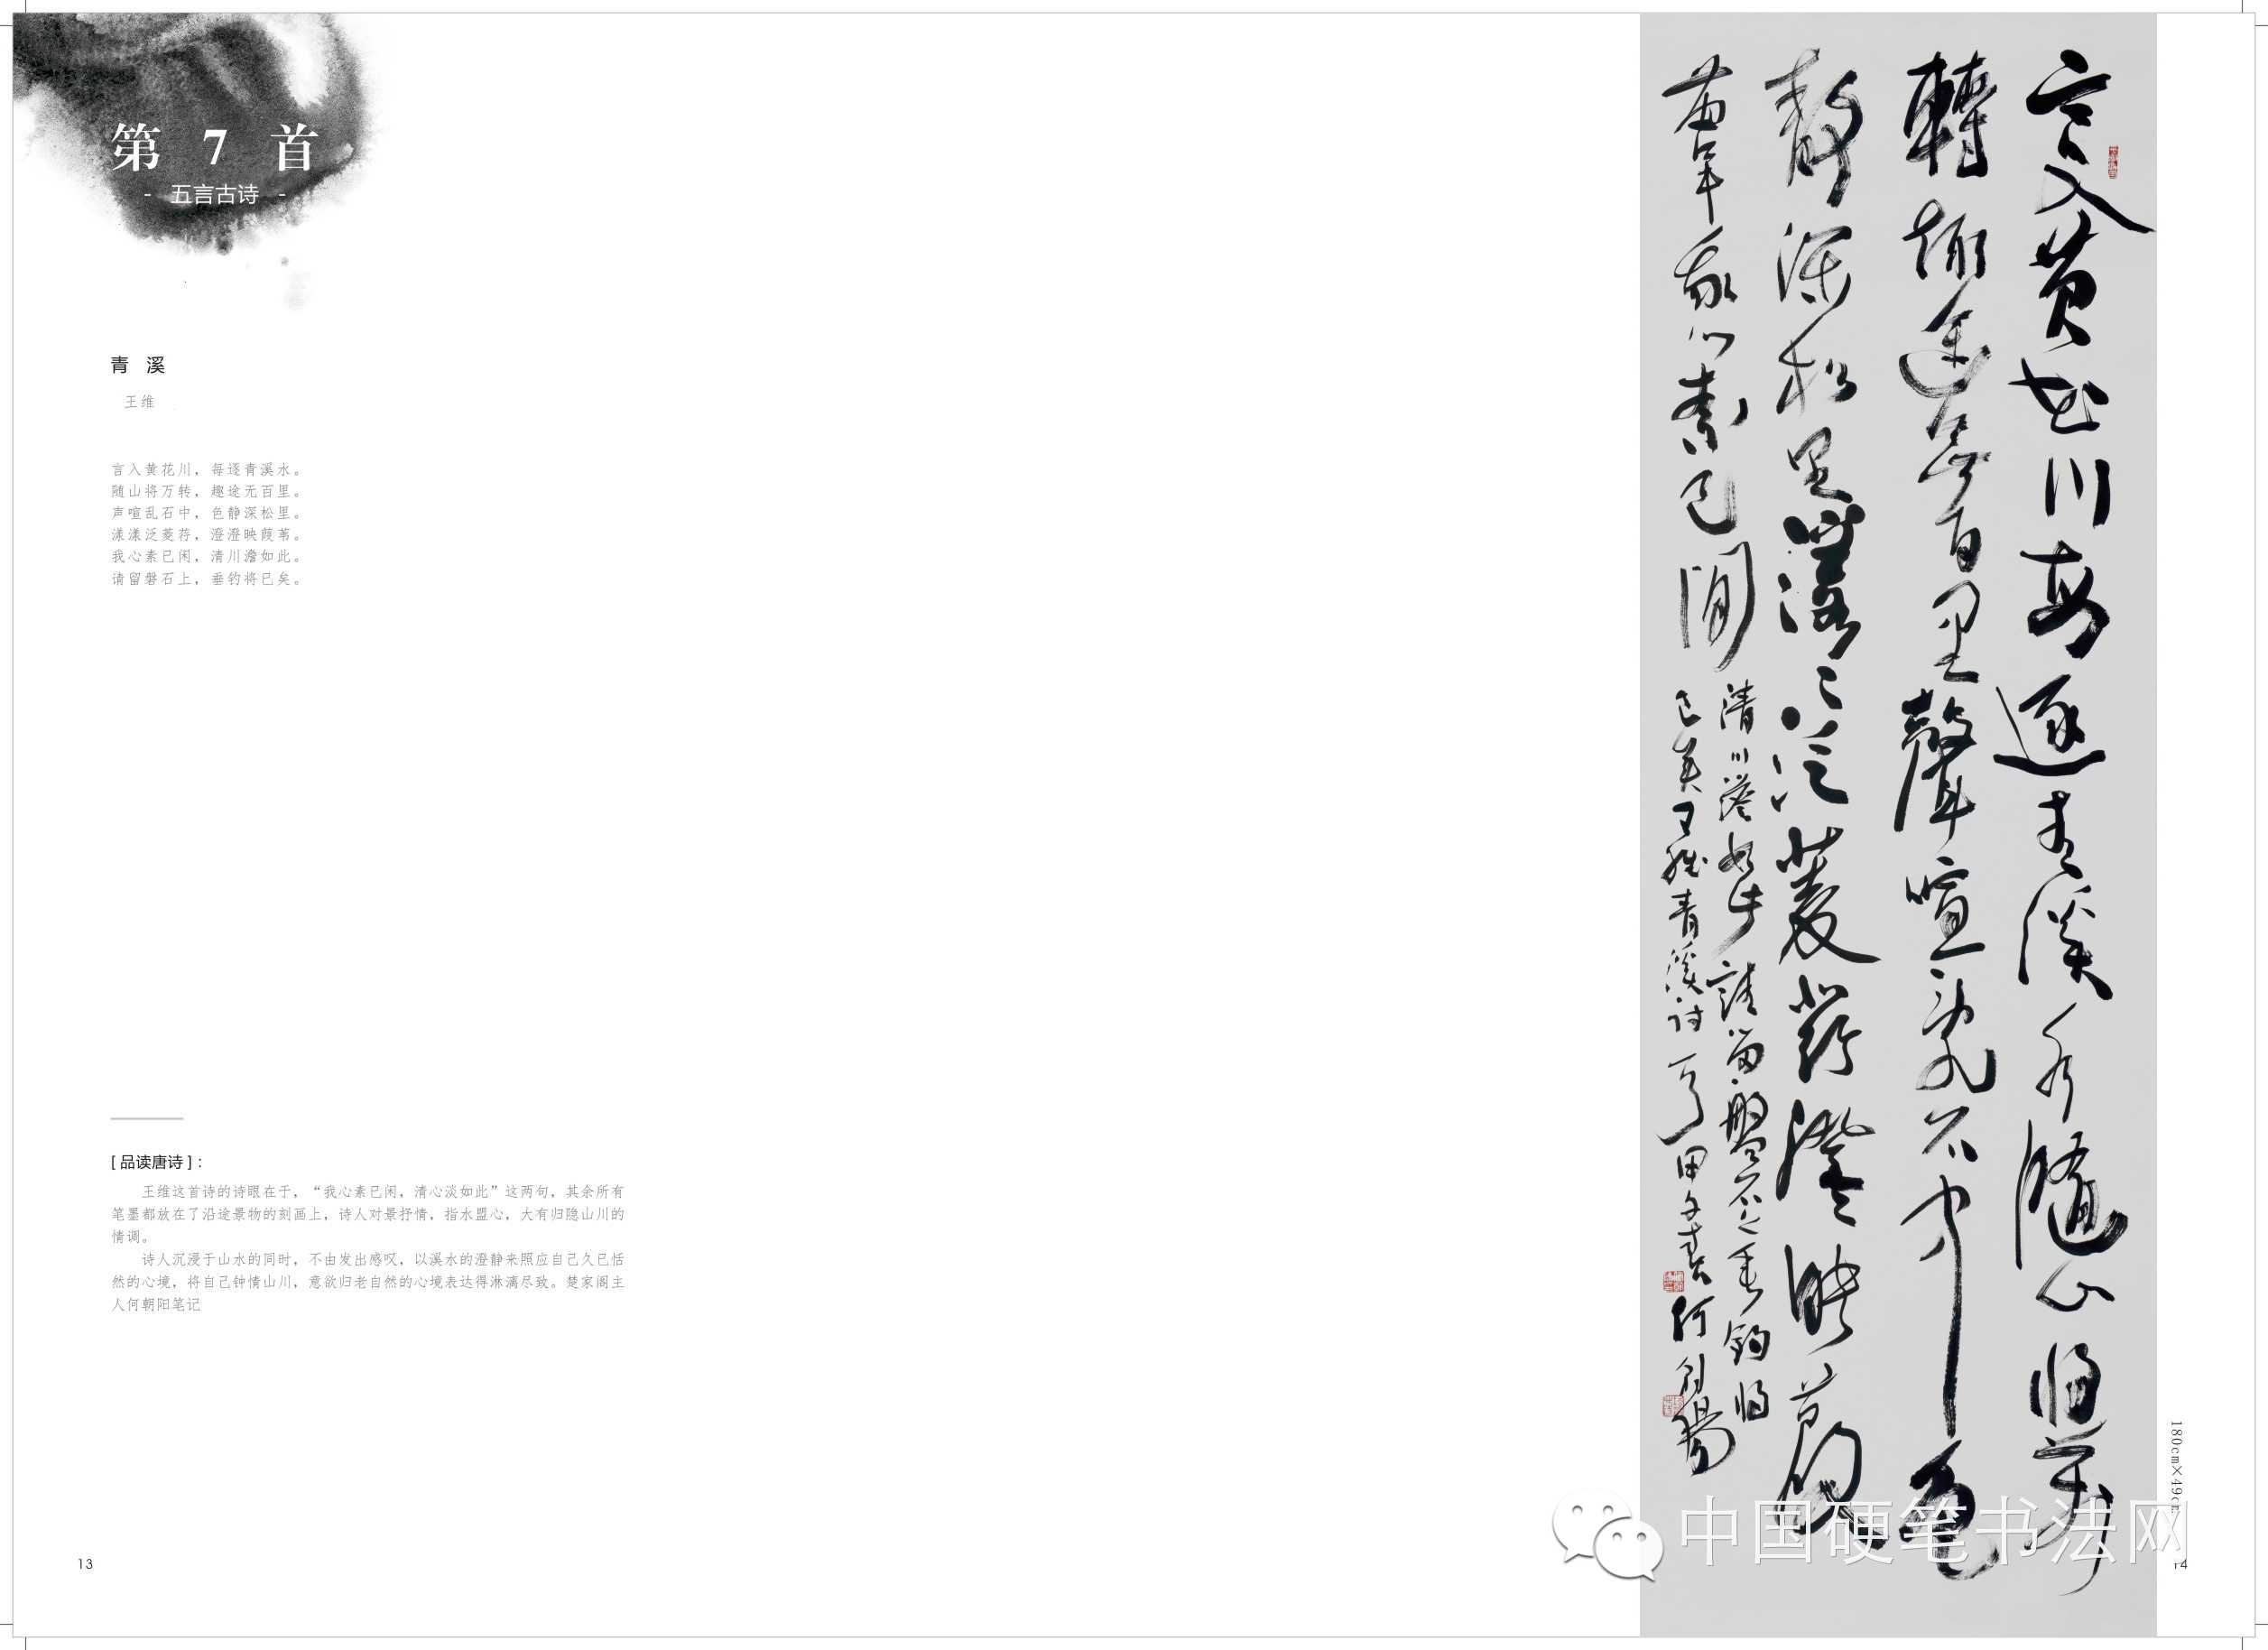 第 7 首
- 五言古诗 -
青 溪
王维
言入黄花川，每逐青溪水。
随山将万转，趣途无百里。
声喧乱石中，色静深松里。
漾漾泛菱荇，澄澄映葭苇。
我心素已闲，清川澹如此。
请留磐石上，垂钓将已矣。
[ 品读唐诗 ]：
王维这首诗的诗眼在于，“我心素已闲，清心淡如此”这两句，其余所有
笔墨都放在了沿途景物的刻画上，诗人对景抒情，指水盟心，大有归隐山川的
情调。
诗人沉浸于山水的同时，不由发出感叹，以溪水的澄静来照应自己久已恬
然的心境，将自己钟情山川，意欲归老自然的心境表达得淋漓尽致。楚家阁主
人何朝阳笔记
13
言入黄花川每逐青溪水随山将万
轉趣途无百里聲喧乱石中色
静深松里漾漾泛菱荇澄映葭
苇我心素已閒
清川澹如此請留盤石上垂钓将
已矣王維青溪诗
甲午春何朝陽
180cm×49cm
中国硬笔书法网
14